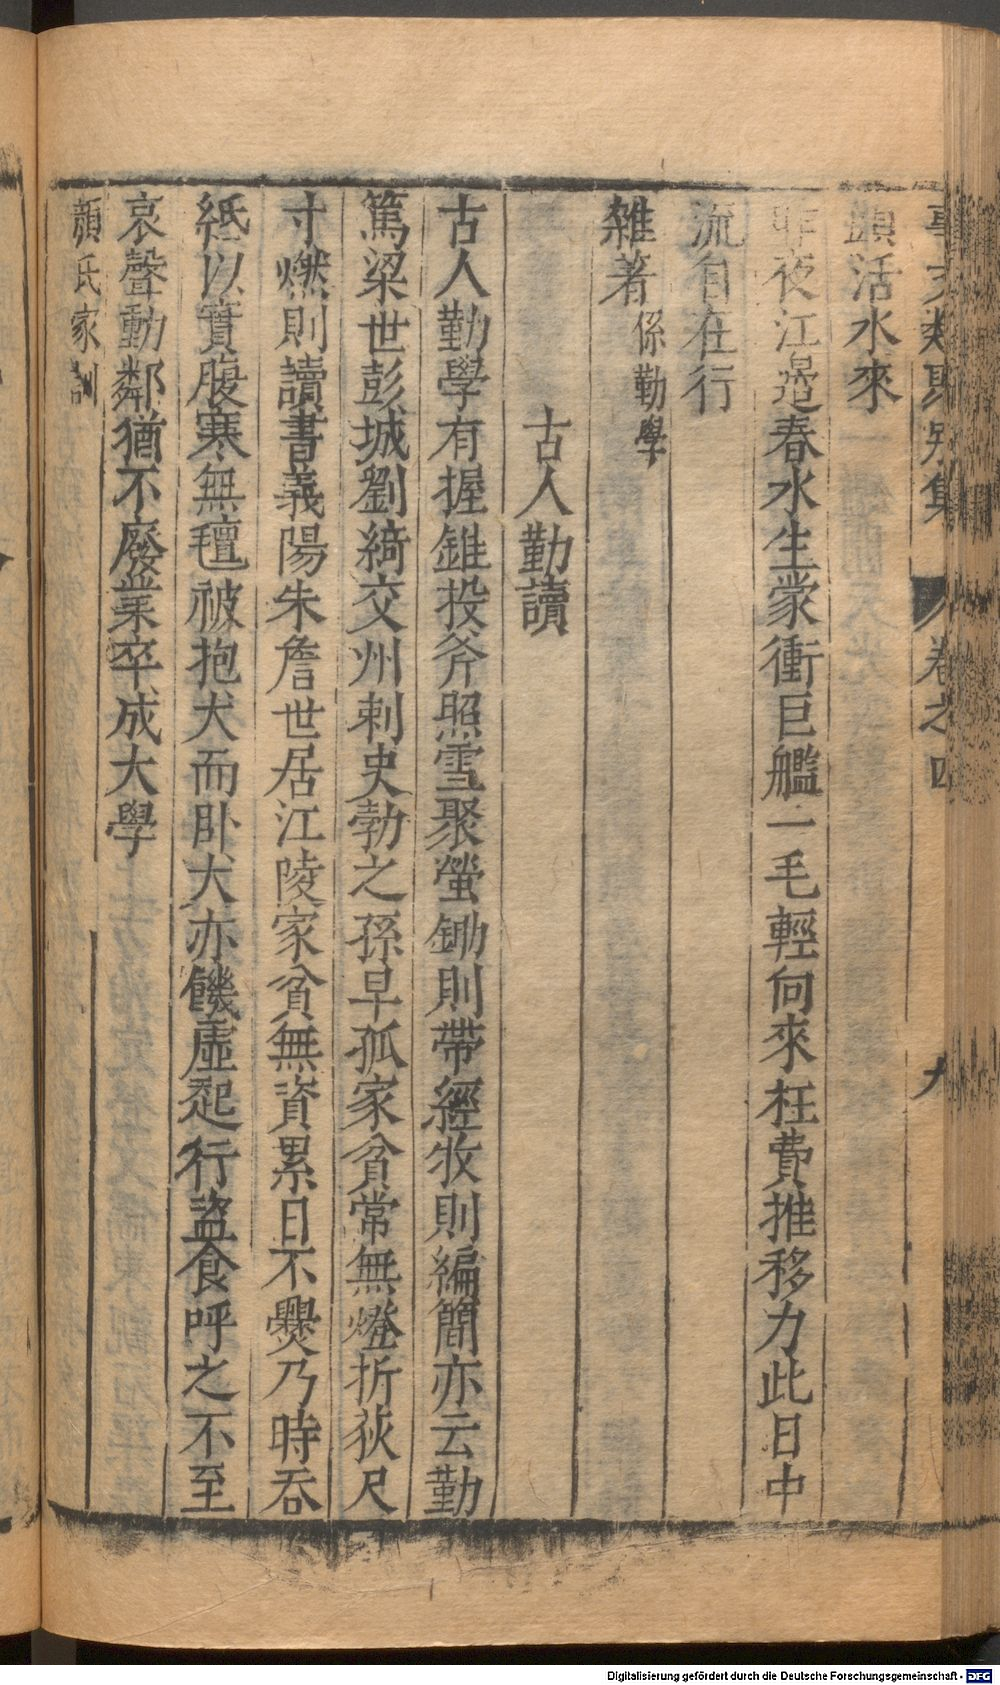 事文類聚別集 卷之四 九
頭活水來
昨夜江邉春水生蒙衝巨艦一毛輕向來枉費推移力此日中
流自在行
雜著 係勤學
古人勤讀
古人勤學有握錐投斧照雪聚螢鋤則帶經牧則編簡亦云勤
篤梁世彭城劉綺交州刺史勃之孫早孤家貧常無燈折荻尺
寸燃則讀書義陽朱詹世居江陵家貧無資累日不爨乃時吞
紙以實腹寒無氊被抱犬而卧犬亦饑虛起行盜食呼之不至
哀聲動鄰猶不廢業卒成大學
顏氏家訓
Digitalisierung gefördert durch die Deutsche Forschungsgemeinschaft - DFG